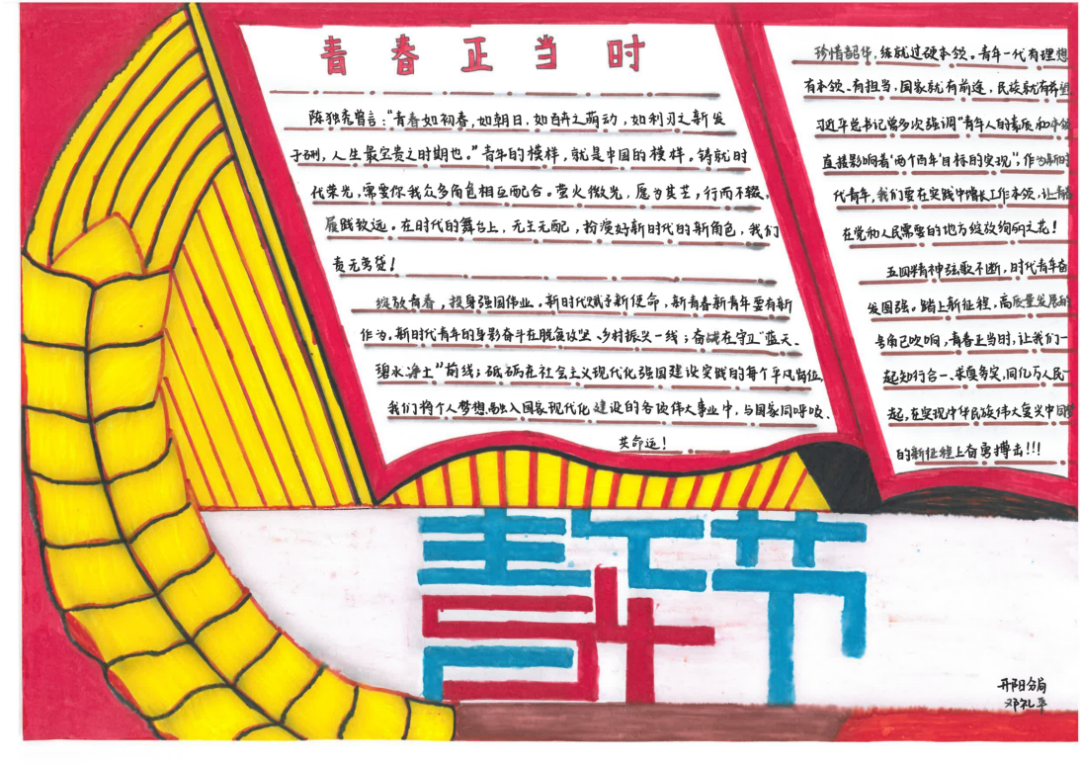 青春正当时
陈独秀曾言:“青春如初春,如朝日,如百卉之萌动,如利刃之新发
于硎,人生最宝贵之时期也。”青年的模样,就是中国的模样。铸就时
代荣光,需要你我众多角色相互配合。萤火微光,愿为其芒,行而不辍,
履践致远。在时代的舞台上,无主无配,扮演好新时代的新角色,我们
责无旁贷!
绽放青春,投身强国伟业。新时代赋予新使命,新青春新青年要有新
作为。新时代青年的身影奋斗在脱贫攻坚、乡村振兴一线;奋战在守卫“蓝天、
碧水、净土”前线;砥砺在社会主义现代化强国建设实践的每个平凡岗位。
我们将个人梦想融入国家现代化建设的各项伟大事业中,与国家同呼吸、
共命运!
珍惜韶华,练就过硬本领。青年一代有理想
有本领、有担当,国家就有前途,民族就有希望
习近平总书记曾多次强调“青年人的素质和本领
直接影响着‘两个百年’目标的实现”,作为新时
代青年,我们要在实践中增长工作本领,让青春
在党和人民需要的地方绽放绚丽之花!
五四精神弦歌不断,时代青年奋
发图强。踏上新征程,高质量发展的
号角已吹响,青春正当时,让我们一
起知行合一、求真务实,同亿万人民一
起,在实现中华民族伟大复兴中国梦
的新征程上奋勇搏击!!!
青年节
开阳分局
邓礼平